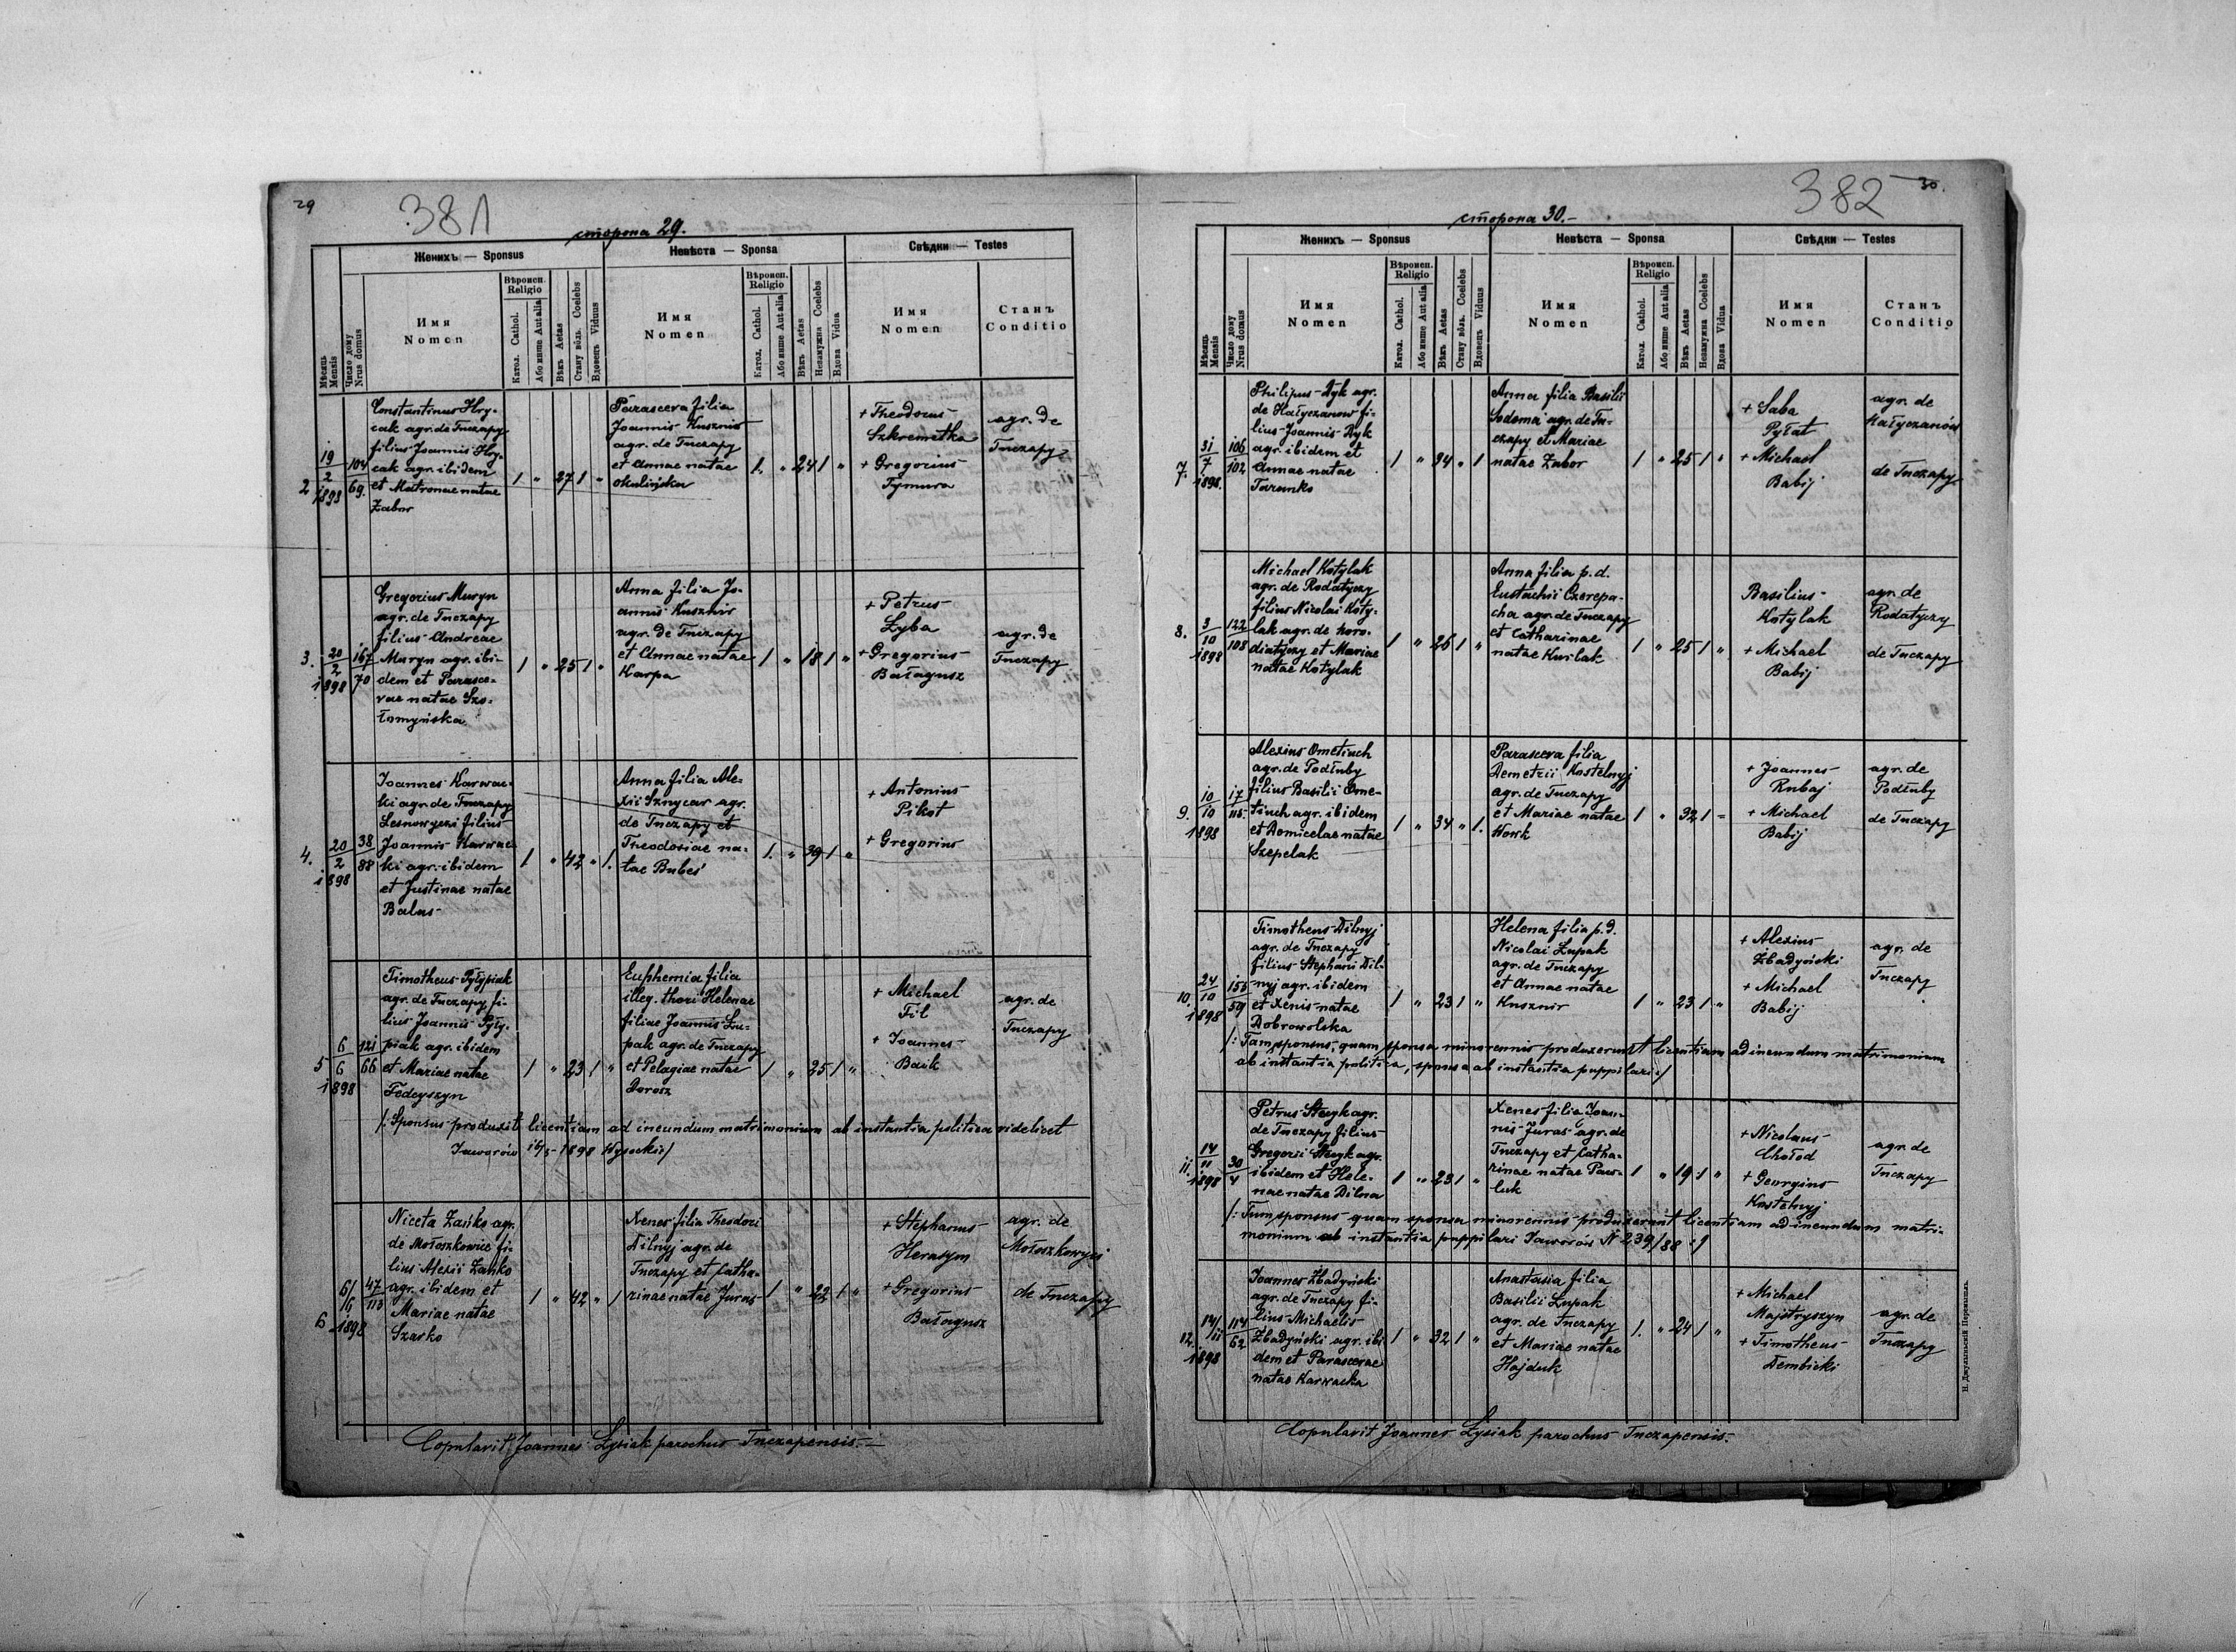 29
381
сторона 29.
Женихъ — Sponsus
Невѣста — Sponsa
Свѣдки — Testes
Мѣсяць Mensis
Число дому Nrus domus
Имя Nomen
Вѣроисп. Religio
Катол. Cathol.
Або инше Aut alia
Вѣкъ Aetas
Стану вôль. Coelebs
Вдовець Viduus
Имя Nomen
Вѣроисп. Religio
Катол. Cathol.
Або инше Aut alia
Вѣкъ Aetas
Незамужна Coelebs
Вдова Vidua
Имя Nomen
Станъ Conditio
2
19/2 1898
104/69.
Constantinus Hry-
cak agr. de Tuczapy
filius Joannis Hry-
cak agr. ibidem
et Matronae natae
Zabor
1 " 27 1 "
Parasceva filia
Joannis Kusznir
agr. de Tuczapy
et Annae natae
Okulińska
1. " 24 1 "
+ Theodorus
Szkremetka
+ Gregorius
Tymura
agr. de
Tuczapy
3.
20/2 1898
167/70
Gregorius Muryn
agr. de Tuczapy
filius Andreae
Muryn agr. ibi-
dem et Parasce-
vae natae Szo-
łomyńska
1 " 25 1 "
Anna filia Jo-
annis Kusznir
agr. de Tuczapy
et Annae natae
Karpa
1 " 18 1 "
+ Petrus
Łyba
+ Gregorius
Bałagusz
agr. de
Tuczapy
4.
20/2 1898
38/88
Joannes Karwac-
ki agr. de Tuczapy
Lesnowyczi filius
Joannis Karwac-
ki agr. ibidem
et Justinae natae
Balus
1 " 42 " 1.
Anna filia Ale-
xii Sznycar agr.
de Tuczapy et
Theodosiae na-
tae Bubeś
1. " 39 1 "
+ Antonius
Pikot
+ Gregorius
5
6/6 1898
121/66
Timotheus Pyłypiak
agr. de Tuczapy fi-
lius Joannis Pyły-
piak agr. ibidem
et Mariae natae
Fedeyszyn
1 " 23 1 "
Euphemia filia
illeg. thori Helenae
filiae Joannis Łu-
pak agr. de Tuczapy
et Pelagiae natae
Dorosz
1 " 25 1 "
+ Michael
Fil
+ Joannes
Baik
agr. de
Tuczapy
/: Sponsus produxit licentiam ad ineundum matrimonium ab instantia politica videlicet
Jaworów 16/5 1898 Wysocki :/
6
6/6 1898
47/113
Niceta Zańko agr.
de Mołoszkowice fi-
lius Alexii Zańko
agr. ibidem et
Mariae natae
Szarko
1 " 42 " 1
Xenes filia Theodori
Dilnyj agr. de
Tuczapy et Catha-
rinae natae Juras
1 " 22 1 "
+ Stephanus
Herasym
+ Gregorius
Bałagusz
agr. de
Mołoszkowyci
de Tuczapy
Copulavit Joannes Łysiak parochus Tuczapensis.
382
30.
сторона 30.
Женихъ — Sponsus
Невѣста — Sponsa
Свѣдки — Testes
Мѣсяць Mensis
Число дому Nrus domus
Имя Nomen
Вѣроисп. Religio
Катол. Cathol.
Або инше Aut alia
Вѣкъ Aetas
Стану вôль. Coelebs
Вдовець Viduus
Имя Nomen
Вѣроисп. Religio
Катол. Cathol.
Або инше Aut alia
Вѣкъ Aetas
Незамужна Coelebs
Вдова Vidua
Имя Nomen
Станъ Conditio
7.
31/7 1898.
106/102
Philipus Dyk agr.
de Hałyczanow fi-
lius Joannis Dyk
agr. ibidem et
Annae natae
Taranko
1 " 34 " 1
Anna filia Basilii
Sodoma agr. de Tu-
czapy et Mariae
natae Zabor
1 " 25 1 "
+ Saba
Pyłat
+ Michael
Babij
agr. de
Hałyczanów
de Tuczapy
8.
3/10 1898
122/108
Michael Kotylak
agr. de Rodatyczy
filius Nicolai Koty-
lak agr. de horo-
diatyczy et Mariae
natae Kotylak
1 " 26 1 "
Anna filia p. d.
Eustachii Czerepa-
cha agr. de Tuczapy
et Catharinae
natae Kurlak
1 " 25 1 "
Basilius
Kotylak
+ Michael
Babij
agr. de
Rodatyczy
de Tuczapy
9.
10/10 1898
17/115
Alexius Ometiuch
agr. de Podłuby
filius Basilii Ome-
tiuch agr. ibidem
et Domicelae natae
Szepelak
1 " 34 " 1.
Parasceva filia
Demetrii Kostelnyj
agr. de Tuczapy
et Mariae natae
Wowk
1 " 32 1 "
+ Joannes
Rubaj
+ Michael
Babij
agr. de
Podłuby
de Tuczapy
10.
24/10 1898
155/59
Timotheus Dilnyj
agr. de Tuczapy
filius Stephani Dil-
nyj agr. ibidem
et Xenis natae
Dobrowolska
1 " 23 1 "
Helena filia p. d.
Nicolai Łupak
agr. de Tuczapy
et Annae natae
Kusznir
1 " 23 1 "
+ Alexius
Zbadyński
+ Michael
Babij
agr. de
Tuczapy
/: Tam sponsus, quam sponsa minorennis produxerunt licentiam ad ineundum matrimonium
ab instantia politica, sponsa ab instantia puppilari :/
11.
14/11 1898
30/4
Petrus Stecyk agr.
de Tuczapy filius
Gregorii Stecyk agr.
ibidem et Hele-
nae natae Dilna
1 " 23 1 "
Xenes filia Joan-
nis Juras agr. de
Tuczapy et Catha-
rinae natae Paw-
luk
1 " 19 1 "
+ Nicolaus
Chołod
+ Georgius
Kostelnyj
agr. de
Tuczapy
/: Tam sponsus quam sponsa minorennis produxerunt licentiam ad ineundum matri-
monium ab instantia puppilari Jaworów N 239/88 :/
12.
14/11 1898
114/62
Joannes Zbadyński
agr. de Tuczapy fi-
lius Michaelis
Zbadyński agr. ibi
dem et Parascevae
natae Karwacka
1 " 32 1 "
Anastasia filia
Basilii Łupak
agr. de Tuczapy
et Mariae natae
Hajduk
1. " 24 1 "
+ Michael
Majstryszyn
+ Timotheus
Dembicki
agr. de
Tuczapy
Copulavit Joannes Łysiak parochus Tuczapensis.
Н. Джулынскій Перемышль.